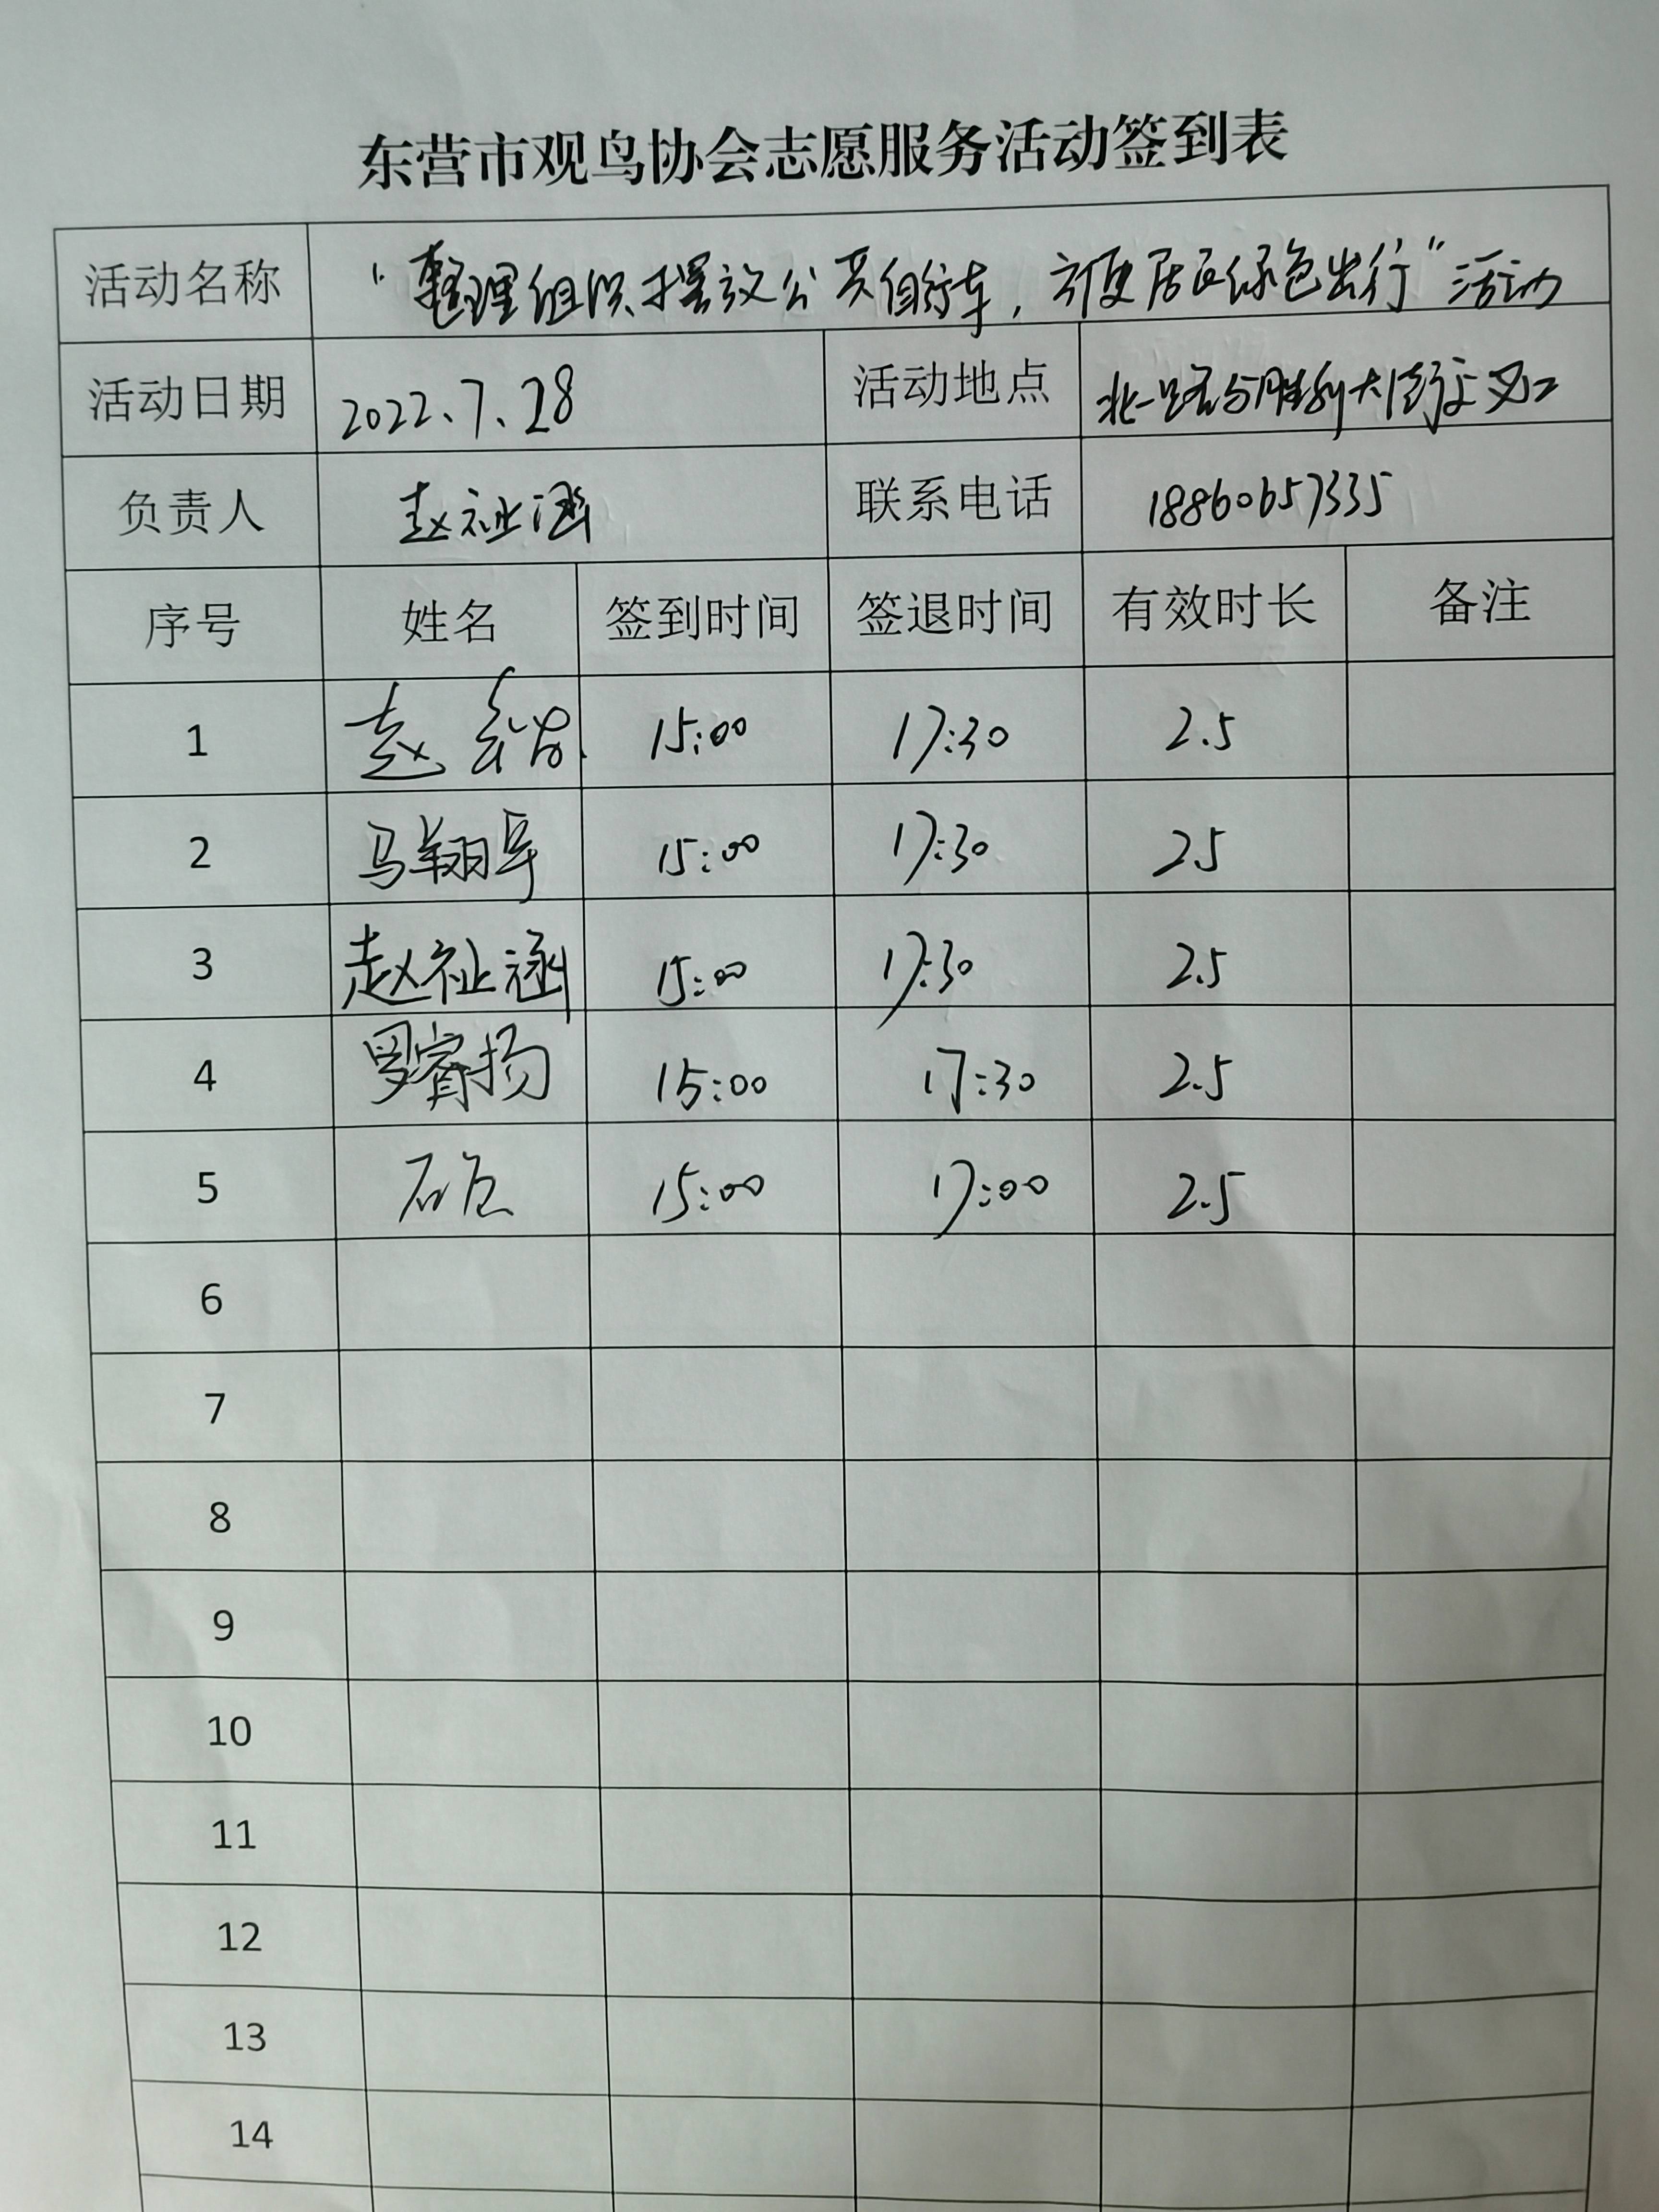 东营市观鸟协会志愿服务活动签到表
活动名称 “整理组织摆放公共自行车，方便居民绿色出行”活动
活动日期 2022、7、28 活动地点 北一路与胜利大街交叉口
负责人 赵祉涵 联系电话 18860657335
序号 姓名 签到时间 签退时间 有效时长 备注
1 赵 15:00 17:30 2.5
2 马翔宇 15:00 17:30 25
3 赵祉涵 15:00 17:30 2.5
4 罗睿扬 15:00 17:30 2.5
5 15:00 17:00 2.5
6
7
8
9
10
11
12
13
14